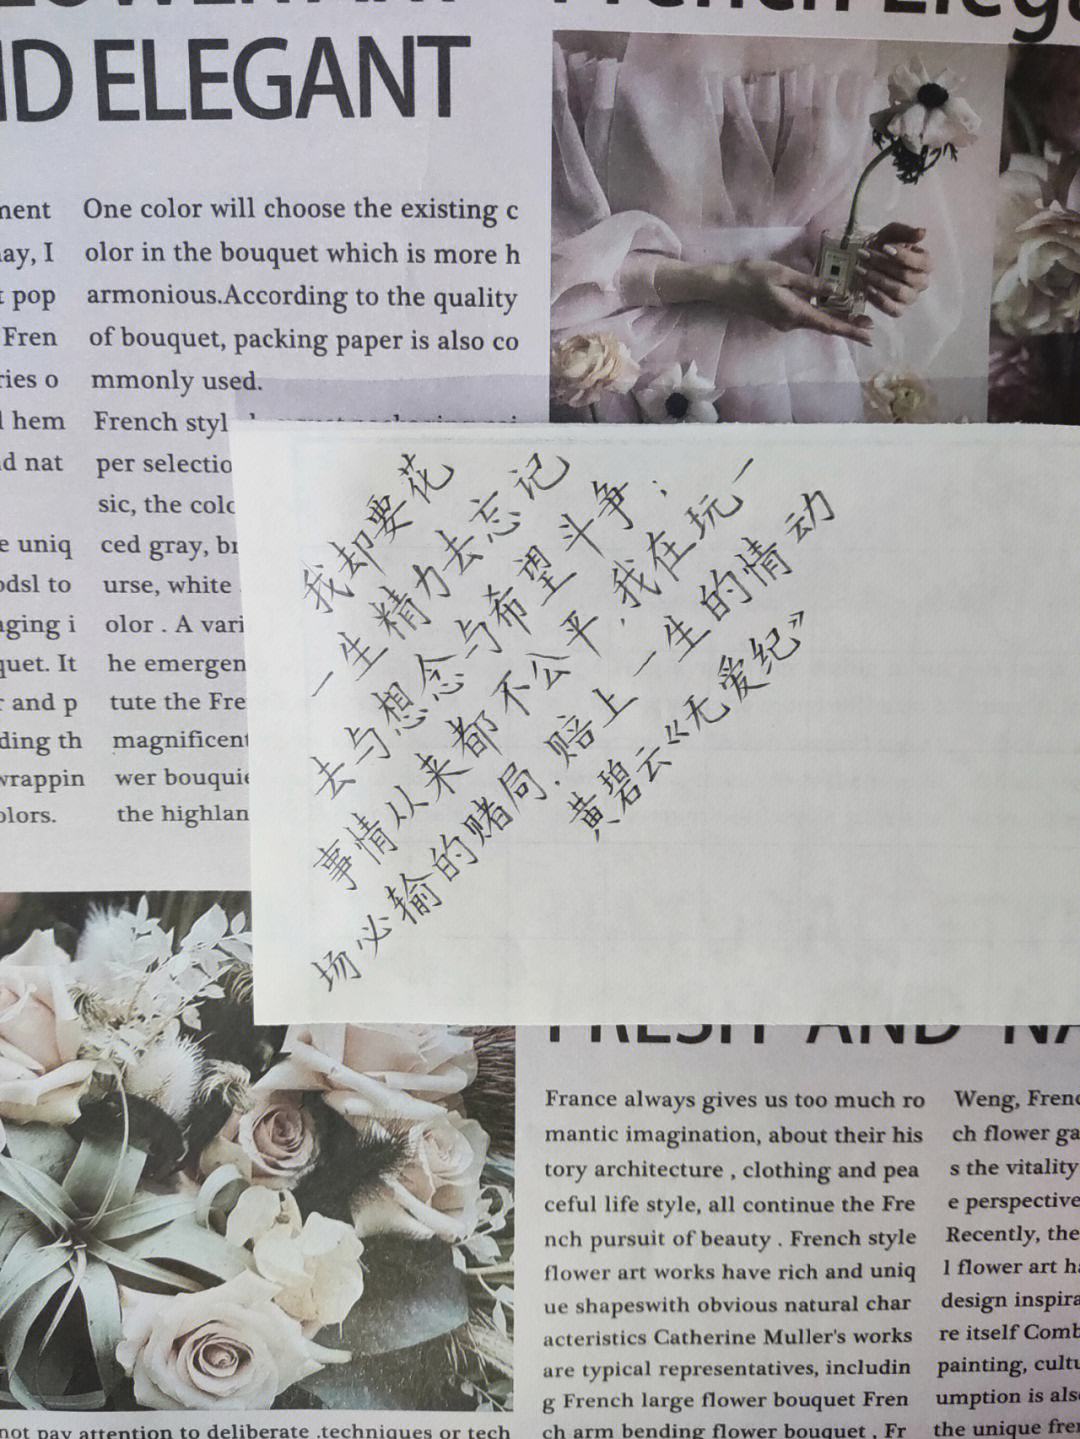 ND ELEGANT
One color will choose the existing c
olor in the bouquet which is more h
armonious.According to the quality
of bouquet, packing paper is also co
mmonly used.
French styl
per selectio
sic, the colo
ced gray, br
urse, white
olor . A vari
he emergen
tute the Fre
magnificent
wer bouquie
the highlan
ay, I
pop
Fren
ries o
hem
d nat
e uniq
odsl to
aging i
quet. It
r and p
ding th
wrappin
olors.
我却要花
一生精力去忘记
去与想念与希望斗争；
事情从来都不公平,我在玩一
场必输的赌局.赔上一生的情动
黄碧云《无爱纪》
FRESH AND NA
France always gives us too much ro
mantic imagination, about their his
tory architecture , clothing and pea
ceful life style, all continue the Fre
nch pursuit of beauty . French style
flower art works have rich and uniq
ue shapeswith obvious natural char
acteristics Catherine Muller's works
are typical representatives, includin
g French large flower bouquet Fren
ch arm bending flower bouquet , Fr
Weng, Frenc
ch flower ga
s the vitality
e perspective
Recently, the
l flower art ha
design inspira
re itself Comb
painting, cultu
umption is also
the unique fren
not pay attention to deliberate .techniques or tech